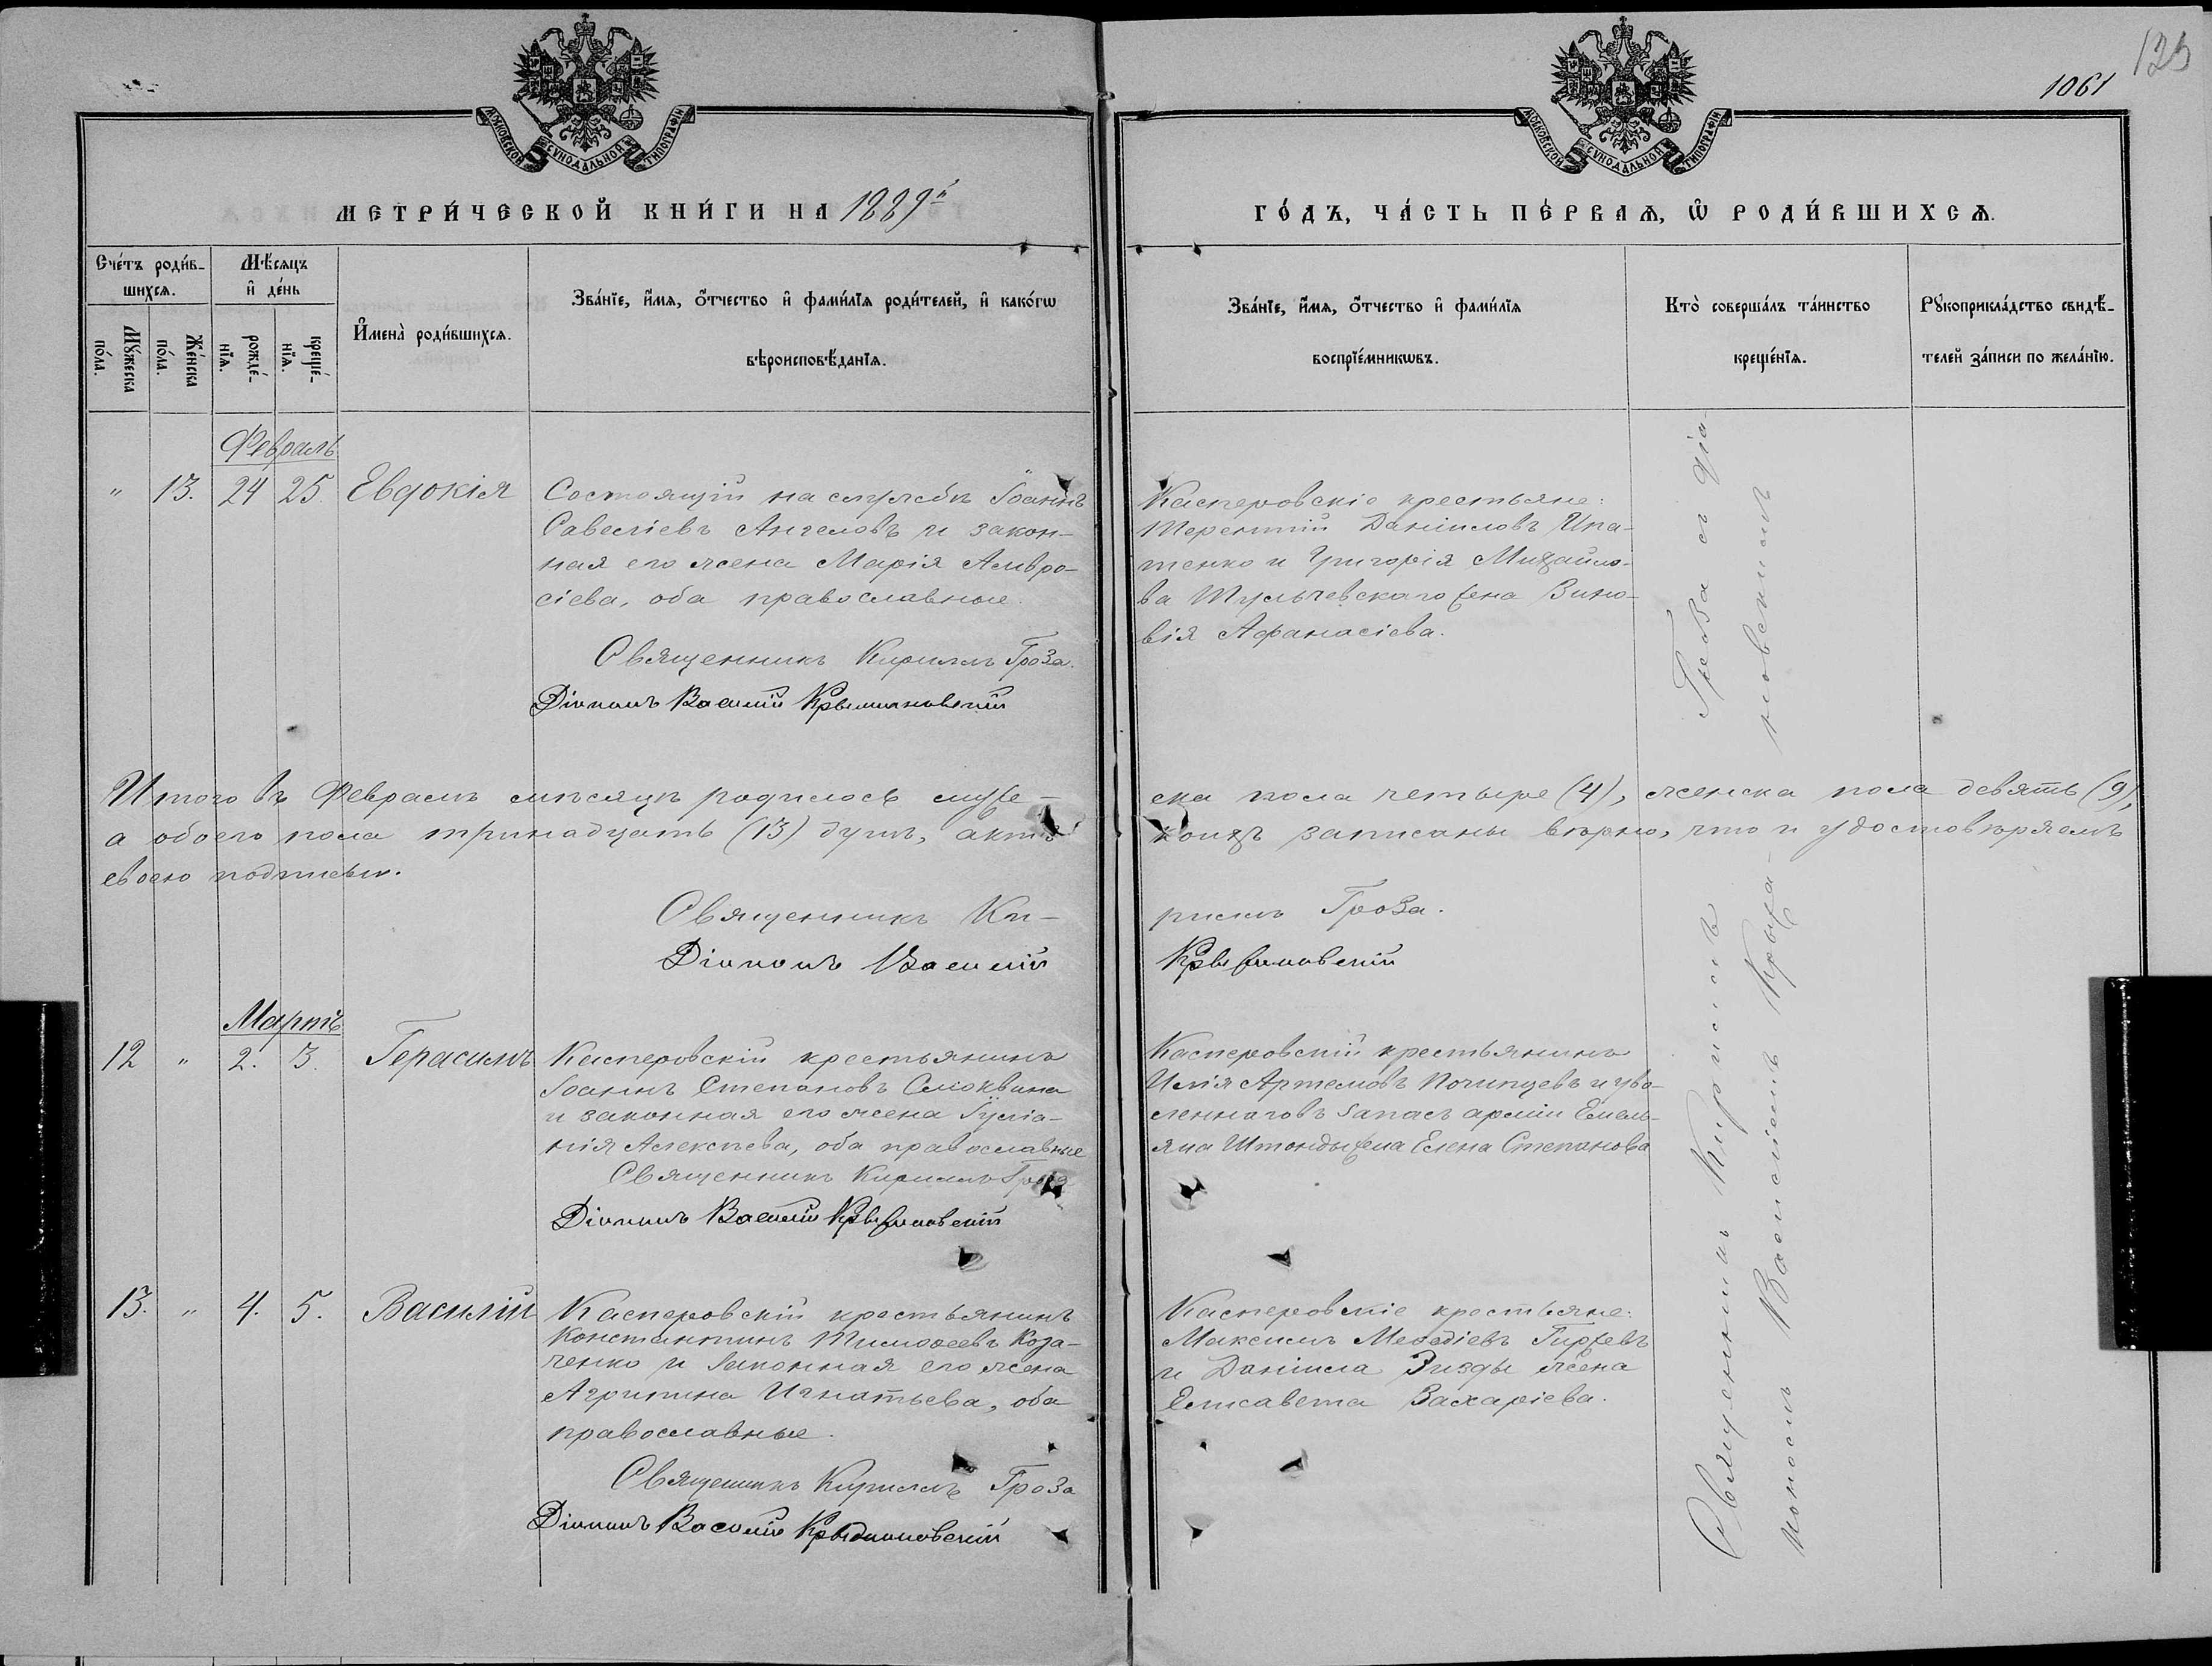 135
1061
МОСКОВСКОЙ СѴНОДАЛЬНОЙ ТИПОГРАФІИ
МОСКОВСКОЙ СѴНОДАЛЬНОЙ ТИПОГРАФІИ
МЕТРИ́ЧЕСКОЙ КНИ́ГИ НА 1889й
ГО́ДЪ, ЧА́СТЬ ПЕ́РВАѦ, Ѡ҆ РОДИ́ВШИХСѦ.
Сче́тъ роди́в-
шихсѧ.
Мѣ́сѧцъ
и҆ де́нь
Мꙋ́жеска
по́ла.
Же́нска
по́ла.
рожде́-
нїѧ.
креще́-
нїѧ.
И҆мена̀ роди́вшихсѧ.
Зва́нїе, и҆́мѧ, ѻ҆́тчество и҆ фами́лїѧ роди́телей, и҆ како́гѡ
вѣроисповѣ́данїѧ.
Зва́нїе, и҆́мѧ, ѻ҆́тчество и҆ фами́лїѧ
воспрїе́мникѡвъ.
Кто̀ соверша́лъ та́инство
креще́нїѧ.
Рꙋкоприкла́дство свидѣ́-
телей за́писи по жела́нїю.
Февраль
" 13. 24 25. Евдокія
Состоящій на службѣ Іоаннъ
Савеліевъ Ангеловъ и закон-
ная его жена Марія Амвро-
сіева, оба православные.
Священникъ Кириллъ Гроза.
Діаконъ Василій Крыжановскій
Касперовскіе крестьяне:
Терентій Даніиловъ Ипа-
тенко и Григорія Михайло-
ва Тульчевскаго жена Зино-
вія Афанасіева.
Итого въ Февралѣ мѣсяцѣ родилось муже-
ска пола четыре (4), женска пола девять (9),
а обоего пола тринадцать (13) душъ, акты
коихъ записаны вѣрно, что и удостовѣряемъ
своею подписью.
Священникъ Ки-
риллъ Гроза.
Діаконъ Василій
Крыжановскій
Мартъ
12 " 2. 3. Герасимъ
Касперовскій крестьянинъ
Іоаннъ Степановъ Смоквина
и законная его жена Іуліа-
нія Алексѣева, оба православные
Священникъ Кириллъ Гроза
Діаконъ Василій Крыжановскій
Касперовскій крестьянинъ
Илія Артемовъ Починцевъ и уво-
леннаго въ запасъ арміи Емель-
яна Штонды жена Елена Степанова
13. " 4. 5. Василій
Касперовскій крестьянинъ
Константинъ Тимоѳеевъ Коза-
ченко и законная его жена
Агрипина Игнатьева, оба
православные.
Священникъ Кириллъ Гроза
Діаконъ Василій Крыжановскій
Касперовскіе крестьяне:
Максимъ Меѳодіевъ
и Даніила жена
Елисавета Захаріева.
Священникъ Кириллъ Гроза съ діа-
кономъ Василіемъ Крыжа-
новскимъ